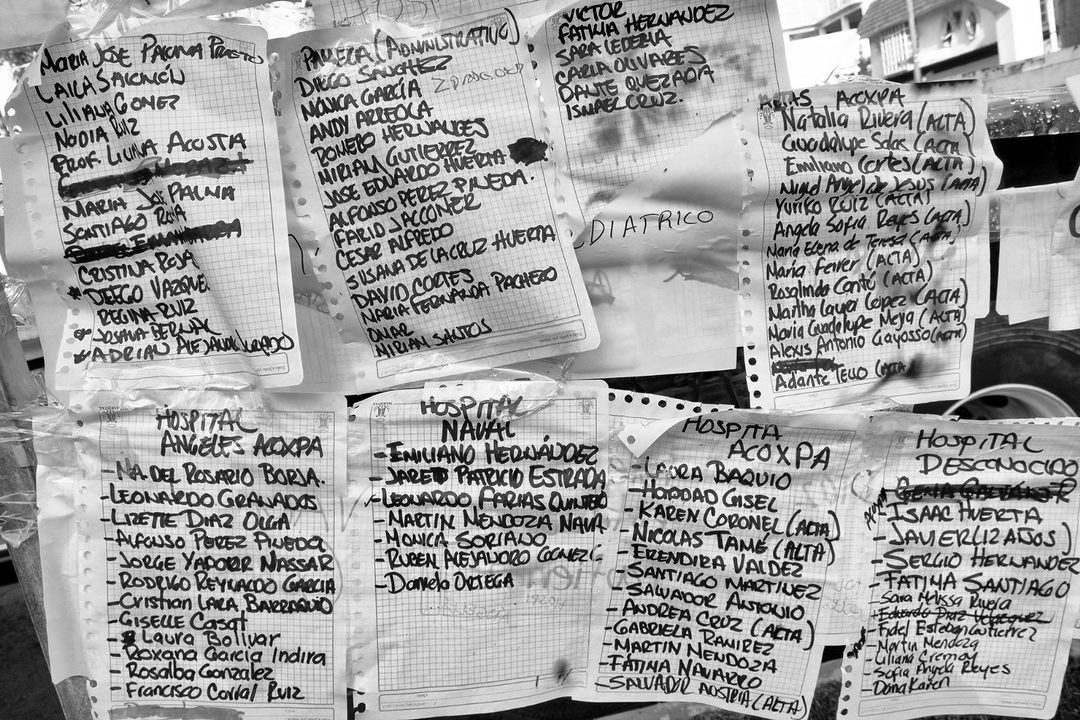 MARIA JOSE PALMA PRIETO
LAILA SALOMÓN
LILIANA GOMEZ
NADIA RUIZ
PROF. LIUNA ACOSTA
MARIA JOSÉ PALMA
SANTIAGO ROJA
CRISTINA REVA
DIEGO VAZQUEZ
REGINA RUIZ
JOSHUA BERNAL
ADRIAN ALEJANDRO JURADO
PAMELA (ADMINISTRATIVO)
DIEGO SANCHEZ
MONICA GARCÍA
ANDY ARREOLA
ROMERO HERNANDES
MIRIAM GUTIERREZ
JOSE EDUARDO HUERTA
ALFONSO PEREZ PINEDA.
FARID JACCONER
CESAR ALFREDO
SUSANA DE LA CRUZ HUERTA
DAVID CORTES
MARIA FERNANDA PACHECO
OMAR
MIRIAN SANTOS
VICTOR
FATIMA HERNANDEZ
SARA LEDEZMA
CARLA OLIVARES
DANTE QUEZADA
ISMAEL CRUZ.
DIATRICO
ALTAS ACOXPA
Natalia Rivera (ALTA)
Guadalupe Salas (ALTA)
Emiliano Cortes (ALTA)
Miguel Angel de Jesús (ALTA)
Yuriko RUIZ (ALTA)
Angela Sofia Reyes (ALTA)
Maria Elena de Teresa (ALTA)
Maria Ferrer (ALTA)
Rosalinda Cantú (ALTA)
Martha Laura Lopez (ALTA)
Maria Guadalupe Mejia (ALTA)
Alexis Antonio Gayosso (ALTA)
Adante TELLO (ALTA)
HOSPITAL
ANGELES ACOXPA
-MA. DEL ROSARIO BORJA.
-LEONARDO GRANADOS
-LIZETTE DIAZ OLGA
-ALFONSO PEREZ PINEDA
-JORGE YADORIR NASSAR
-RODRIGO REYNALDO GARCIA
-Cristian LARA BARRAQUIO
-GISELLE Casat
-Laura Bolivar
-Roxana García Indira
-Rosalba Gonzalez
-Francisco Corral Ruiz
HOSPITAL
NAVAL
-EMILIANO HERNÁNDEZ
-JARED PATRICIO ESTRADA
-LEONARDO FARIAS QUINTERO
-MARTIN MENDOZA NAVA
-MONICA SORIANO
-RUBEN ALEJANDRO
-Daniela ORTEGA
HOSPITA
ACOXPA
-LAURA BAQUIO
-HADDAD GISEL
-KAREN CORONEL (ALTA)
-NICOLAS TAMÉ (ALTA)
-ERENDIRA VALDEZ
-SANTIAGO MARTINEZ
-SALVADOR ANTONIO
-ANDREA CRUZ (ALTA)
-GABRIELA RAMIREZ
-MARTIN MENDOZA
-FÁTIMA NAVARRO
-SALVADOR AUSTRIA (ALTA)
HOSPITAL
DESCONOCIDO
-ISAAC HUERTA
-JAVIER (12 AÑOS)
-SERGIO HERNANDEZ
-FATIMA SANTIAGO
-Sara Melissa Rivera
-Eduardo Diaz Velazquez
-Fidel Esteban Gutierrez
-Martin Mendoza
-Liliana Cremay
-Sofia Angela Reyes
-Dana Karen